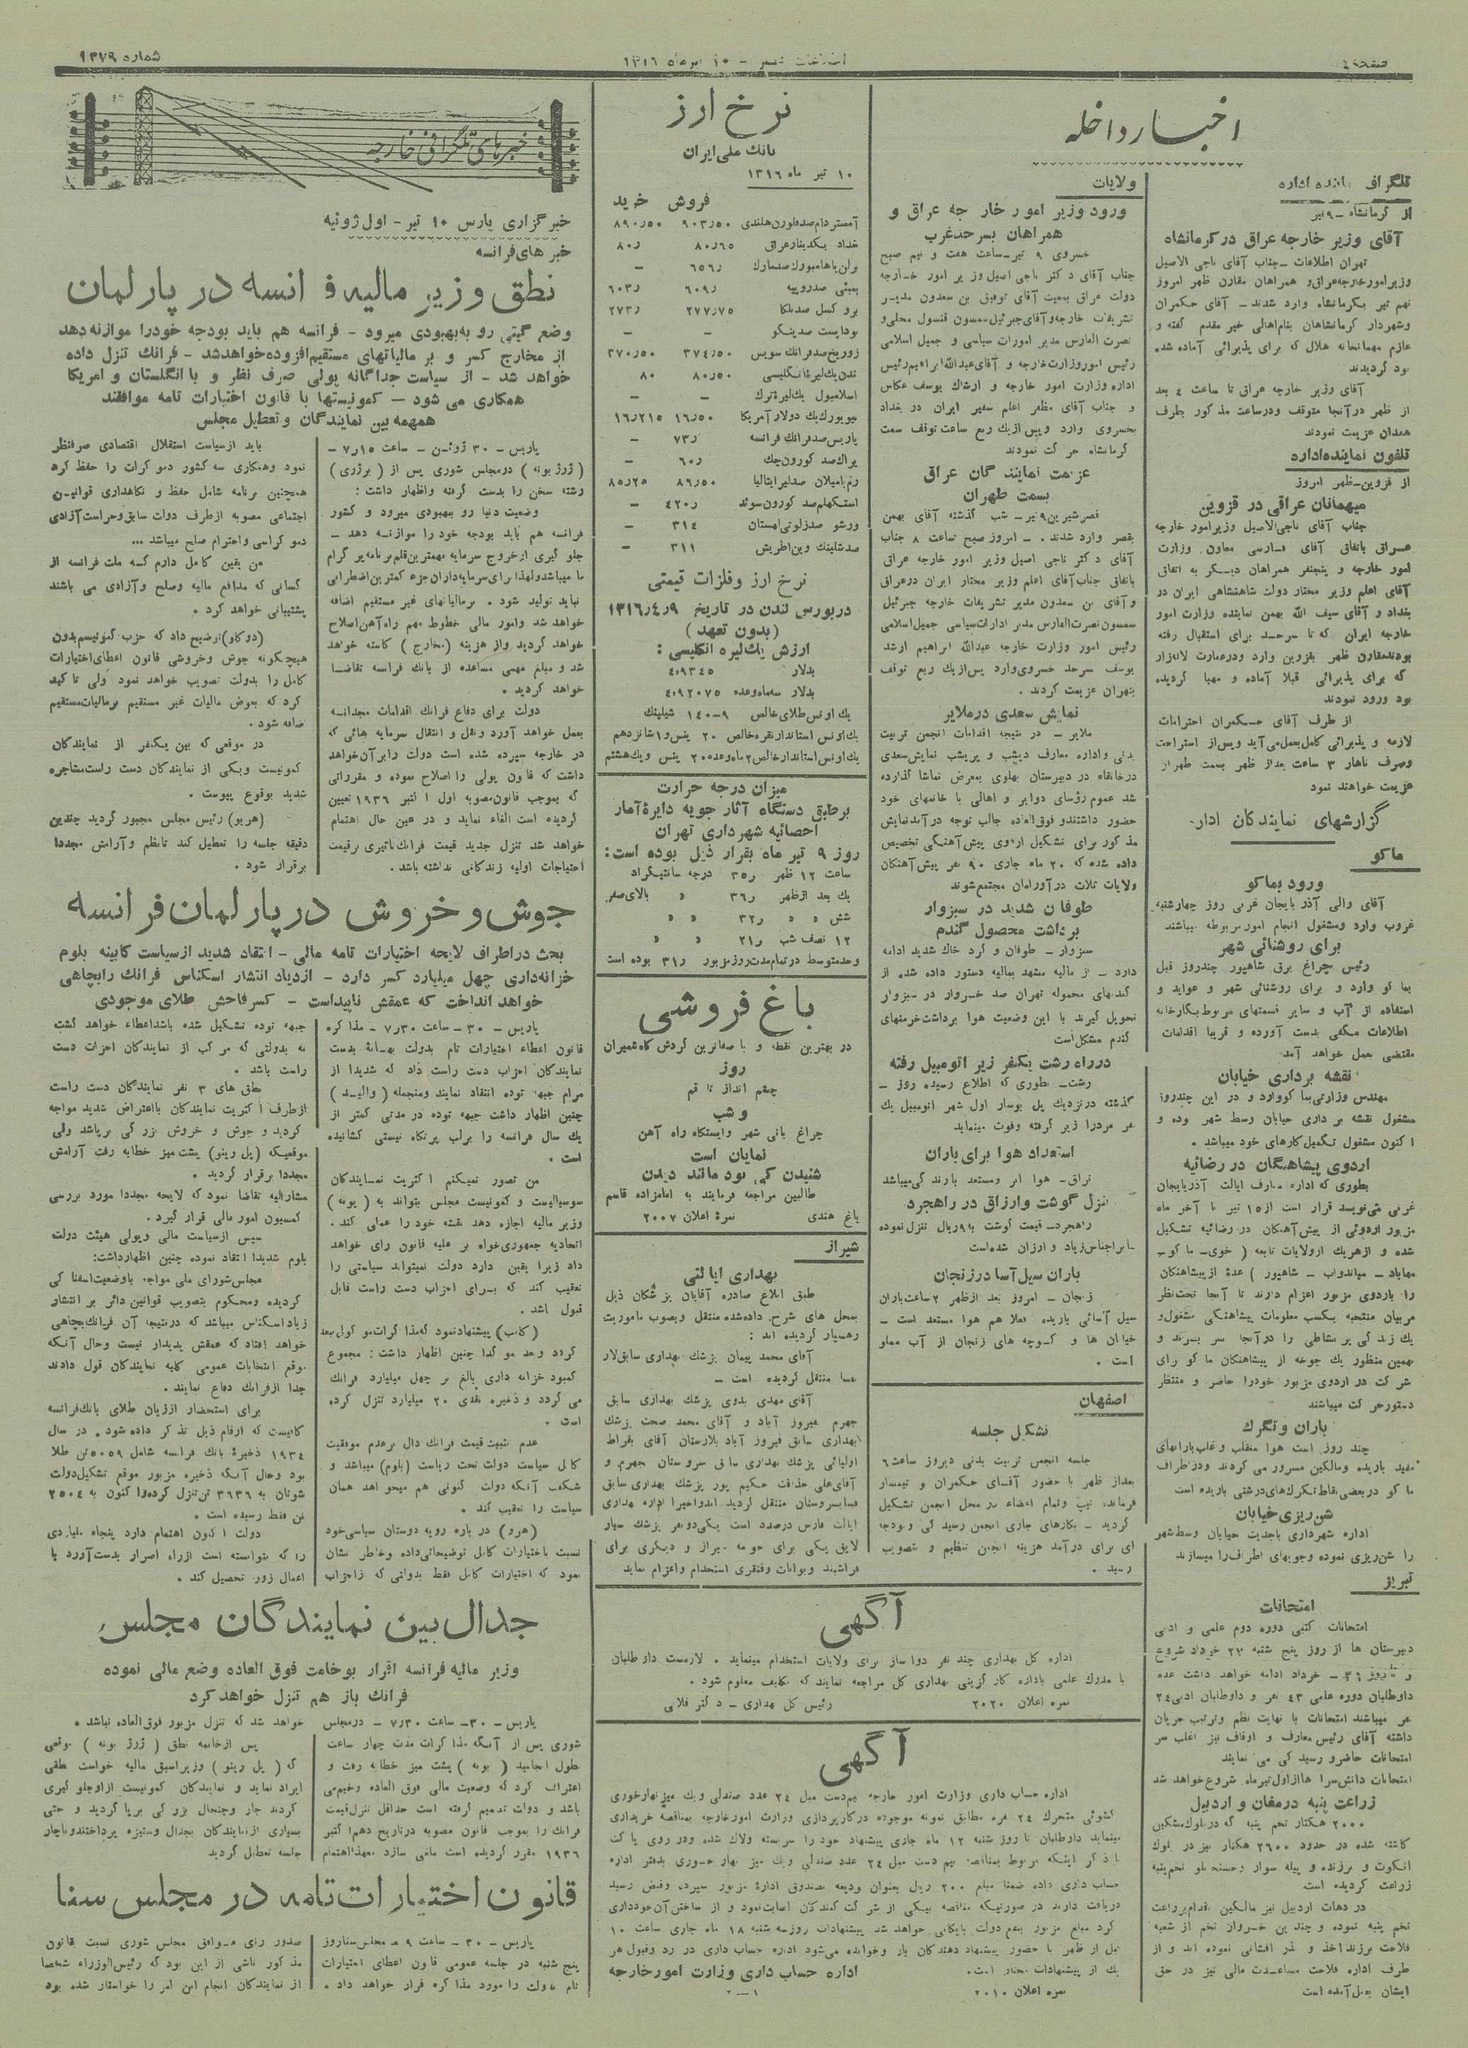 شماره ۱۳۷۹
اخبار داخله
تلگراف نماینده اداره
از کرمانشاه - ۹ تیر
آقای وزیر خارجه عراق در کرمانشاه
تهران اطلاعات - جناب آقای ناجی الاصیل
وزیر امور خارجه عراق و همراهان مقارن ظهر امروز
نهم تیر بکرمانشاه وارد شدند - آقای حکمران
و شهردار کرمانشاهان بنام اهالی خیر مقدم گفته و
عازم مهمانخانه هلال که برای پذیرائی آماده شده
بود گردیدند
آقای وزیر خارجه عراق تا ساعت ۴ بعد
از ظهر در آنجا متوقف و در ساعت مذکور بطرف
همدان عزیمت نمودند
تلفون نماینده اداره
از قزوین - ظهر امروز
میهمانان عراقی در قزوین
جناب آقای ناجی الاصیل وزیر امور خارجه
عراق باتفاق آقای فارسی معاون وزارت
امور خارجه و پنجنفر همراهان دیگر به اتفاق
آقای اعلم وزیر مختار دولت شاهنشاهی ایران در
بغداد و آقای سیف الله بهمن نماینده وزارت امور
خارجه ایران که تا سرحد برای استقبال رفته
بودند مقارن ظهر بقزوین وارد و در عمارت لاله‌زار
که برای پذیرائی قبلا آماده و مهیا گردیده
بود ورود نمودند
از طرف آقای حکمران احترامات
لازمه و پذیرائی کامل بعمل می آید و پس از استراحت
و صرف ناهار ۳ ساعت بعد از ظهر بسمت طهران
عزیمت خواهند نمود
گزارشهای نمایندگان اداره
ماکو
ورود بماکو
آقای والی آذربایجان غربی روز چهارشنبه
غروب وارد و مشغول انجام امور مربوطه میباشند
برای روشنائی شهر
رئیس چراغ برق شاهپور چند روز قبل
بماکو وارد و برای روشنائی شهر و عواید و
استفاده از آب و سایر قسمتهای مربوط بکارخانه
اطلاعات مکفی بدست آورده و قریبا اقدامات
مقتضی بعمل خواهد آمد
نقشه برداری خیابان
مهندس وزارتی بماکو وارد و در این چند روز
مشغول نقشه برداری خیابان وسط شهر بوده و
اکنون مشغول تکمیل کارهای خود میباشد
اردوی پیشاهنگان در رضائیه
بطوری که اداره معارف ایالت آذربایجان
غربی می نویسد قرار است از ۱۵ تیر تا آخر ماه
مزبور اردوئی از پیش آهنگان در رضائیه تشکیل
شده و از هریک از ولایات تابعه ( خوی - ماکو -
مهاباد - میاندوآب - شاهپور ) عده از پیشاهنگان
را باردوی مزبور اعزام دارند تا آنجا تحت نظر
مربیان منتخبه بکسب معلومات پیشاهنگی مشغول و
یک زندگی پر نشاطی را در آنجا سر ببرند و
بهمین منظور یک جوخه از پیشاهنگان ماکو برای
شرکت در اردوی مزبور خود را حاضر و منتظر
دستور حرکت میباشند
باران و تگرگ
چند روز است هوا منقلب و غلب بارانهای
مفید باریده و مالکین مسرور می گردند و در اطراف
ماکو در بعضی نقاط تگرک‌های درشتی باریده است
شن ریزی خیابان
اداره شهرداری باجدیت خیابان وسط شهر
را شن ریزی نموده و جویهای اطراف را میسازند
تبریز
امتحانات
امتحانات کتبی دوره دوم علمی و ادبی
دبیرستان ها از روز پنج شنبه ۲۷ خرداد شروع
و تا روز ۳۱ - خرداد ادامه خواهد داشت عده
داوطلبان دوره علمی ۴۳ نفر و داوطلبان ادبی ۲۴
نفر میباشند امتحانات با نهایت نظم و ترتیب جریان
داشته آقای رئیس معارف و اوقاف نیز اغلب سر
امتحانات حاضر و رسیدگی می نمایند
امتحانات دانش سراها از اول تیرماه شروع خواهد شد
زراعت پنبه در مغان و اردبیل
۲۰۰۰ هکتار تخم پنبه که در بلوک مشکین
کاشته شده در حدود ۲۶۰۰ هکتار نیز در بلوک
انگوت و برزند و پیله سوار و حسنخانلو تخم پنبه
زراعت گردیده است
در دهات اردبیل نیز مالکین اقدام بزراعت
تخم پنبه نموده و چندین خروار تخم از شعبه
فلاحت برزند اخذ و بذر افشانی نموده اند و از
طرف اداره فلاحت مساعدت مالی نیز در حق
ایشان بعمل آمده است
ولایات
ورود وزیر امور خارجه عراق و
همراهان بسرحد غرب
خسروی ۹ تیر - ساعت هفت و نیم صبح
جناب آقای دکتر ناجی اصیل وزیر امور خارجه
دولت عراق بمعیت آقای توفیق بن سعدون مدیر
تشریفات خارجه و آقای جبرئیل سمسون قنسول محلی و
نصرت الفارس مدیر امورات سیاسی و جمیل اسلامی
رئیس امور وزارت خارجه و آقای عبدالله ابراهیم رئیس
اداره وزارت امور خارجه و ارشاک یوسف عکاس
و جناب آقای مظفر اعلم سفیر ایران در بغداد
بخسروی وارد و پس از یک ربع ساعت توقف سمت
کرمانشاه حرکت نمودند
عزیمت نمایندگان عراق
بسمت طهران
قصر شیرین ۹ تیر - شب گذشته آقای بهمن
بقصر وارد شدند - امروز صبح ساعت ۸ جناب
آقای دکتر ناجی اصیل وزیر امور خارجه عراق
باتفاق جناب آقای اعلم وزیر مختار ایران در عراق
و آقای بن سعدون مدیر تشریفات خارجه جبرئیل
سمسون نصرت الفارس مدیر ادارات سیاسی جمیل اسلامی
رئیس امور وزارت خارجه عبدالله ابراهیم ارشد
یوسف سرحد خسروی وارد پس از یک ربع توقف
بتهران عزیمت کردند .
نمایش سعدی در ملایر
ملایر - در نتیجه اقدامات انجمن تربیت
بدنی و اداره معارف دیشب و پریشب نمایش سعدی
در خانقاه در دبیرستان پهلوی بمعرض تماشا گذارده
شد عموم رؤسای دوایر و اهالی با خانمهای خود
حضور داشتند و فوق العاده جالب توجه در آمد نمایش
مذکور برای تشکیل اردوی پیش آهنگی تخصیص
داده شده که ۲۰ ماه جاری ۹۰ نفر پیش آهنگان
ولایات ثلاث در آورامان مجتمع شوند
طوفان شدید در سبزوار
برداشت محصول گندم
سبزوار - طوفان و گرد خاک شدید ادامه
دارد - از مالیه مشهد بمالیه دستور داده شد از
گندمهای محموله تهران صد خروار در سبزوار
تحویل گیرند با این وضعیت هوا برداشت خرمنهای
گندم مشکل است
در راه رشت یکنفر زیر اتومبیل رفته
رشت - بطوری که اطلاع رسیده روز -
گذشته در نزدیک پل بوسار اول شهر اتومبیل یک
نفر مرد را زیر گرفته و فوت مینماید
استعداد هوا برای باران
نراق - هوا ابر و مستعد بارندگی میباشد
تنزل گوشت و ارزاق در راهجرد
راهجرد - قیمت گوشت به ۹ ریال تنزل نموده
سایر اجناس زیاد و ارزان شده است
باران سیل آسا در زنجان
زنجان - امروز بعد از ظهر ۲ ساعت باران
سیل آسائی باریده فعلا هم هوا مستعد است -
خیابان ها و کوچه های زنجان از آب مملو
است .
اصفهان
تشکیل جلسه
جلسه انجمن تربیت بدنی دیروز ساعت ۶
بعد از ظهر با حضور آقای حکمران و تیمسار
فرمانده تیپ و تمام اعضاء در محل انجمن تشکیل
گردید - بکارهای جاری انجمن رسیدگی و بودجه
ای برای درآمد هزینه انجمن تنظیم و تصویب
رسید .
نرخ ارز
بانک ملی ایران
۱۰ تیر ماه ۱۳۱۶
فروش خرید
آمستردام صد فلورن هلندی ۹۰۳٫۵۰ ۸۹۰٫۵۰
بغداد یکدینار عراق ۸۰٫۶۵ ۸۰٫
برلن یا هامبورک صد مارک ۶۵۶٫ -
بمبئی صد روپیه ۶۰۹٫ ۶۰۳٫
بروکسل صد بلکا ۲۷۷٫۷۵ ۲۷۳٫
بوداپست صد پنگو - -
زوریخ صد فرانک سویس ۳۷۴٫۵۰ ۳۷۰٫۵۰
لندن یک لیره انگلیسی ۸۰٫۵۰ ۸۰
اسلامبول یک لیره ترک - -
نیویورک یک دولار آمریکا ۱۶٫۵۰ ۱۶٫۲۱۵
پاریس صد فرانک فرانسه ۷۳٫ -
پراک صد کورون چک ۶۰٫ -
رم یا میلان صد لیر ایتالیا ۸۶٫۵۰ ۸۵٫۲۵
استکهلم صد کورون سوئد ۴۲۰٫ -
ورشو صد زلوتی لهستان ۳۱۴ -
صد شلینک وین اطریش ۳۱۱ -
نرخ ارز و فلزات قیمتی
در بورس لندن در تاریخ ۱۳۱۶٫۴٫۹
( بدون تعهد )
ارزش یک لیره انگلیسی :
بدلار ۴٫۹۳۴۵
بدلار سه ماه وعده ۴٫۹۲۰۷۵
یک اونس طلای خالص ۹-۱۴۰ شیلینک
یک اونس استاندارد نقره خالص ۲۰ پنس و ۱ شانزدهم
یک اونس استاندارد خالص ۲ ماه وعده ۲۰ پنس و یک هشتم
میزان درجه حرارت
بر طبق دستگاه آثار جویه دایرهٔ آمار
احصائیه شهرداری تهران
روز ۹ تیر ماه بقرار ذیل بوده است :
ساعت ۱۲ ظهر ۳۵٫ درجه سانتیگراد
یک بعد از ظهر ۳۶٫ » بالای صفر
شش » » ۳۲٫ » »
۱۲ نصف شب ۲۱٫ » »
و حد متوسط در تمام مدت روز مزبور ۳۱٫ بوده است
باغ فروشی
در بهترین نقطه و با صفاترین گردش گاه شمیران
روز
چشم انداز تا قم
و شب
چراغ بانی شهر و ایستگاه راه آهن
نمایان است
شنیدن کی بود مانند دیدن
طالبین مراجعه فرمایند به امامزاده قاسم
باغ هندی نمرهٔ اعلان ۲۰۰۷
شیراز
بهداری ایالتی
طبق ابلاغ صادره آقایان پزشکان ذیل
بمحل های شرح داده شده منتقل و بصوب ماموریت
رهسپار گردیده اند :
آقای محمد پیمان پزشک بهداری سابق لار
بفسا منتقل گردیده است -
آقای مهدی بدوی پزشک بهداری سابق
جهرم بفیروز آباد و آقای محمد صحت پزشک
بهداری سابق فیروز آباد بلارستان آقای بقراط
اولیائی پزشک بهداری سابق سروستان بجهرم و
آقای علی حذاقت حکیم پور پزشک بهداری سابق
فسا بسروستان منتقل گردیده اند و اخیرا اداره بهداری
ایالت فارس درصدد است یکی دو نفر پزشک سیار
لایق یکی برای حومه شیراز و دیگری برای
فراشبند و بوانات و قنقری استخدام و اعزام نماید
آگهی
اداره کل بهداری چند نفر دواساز برای ولایات استخدام مینماید . لازمست داوطلبان
با مدرک علمی باداره کارگزینی بهداری کل مراجعه نمایند که تکلیف معلوم شود .
نمره اعلان ۲۰۲۰ رئیس کل بهداری - دکتر فلاتی
آگهی
اداره حساب داری وزارت امور خارجه نیم دست مبل ۲۴ عدد صندلی و یک میز نهارخوری
کشوئی متحرک ۲۴ نفره مطابق نمونه موجوده در کارپردازی وزارت امور خارجه بمناقصه خریداری
مینماید داوطلبان تا روز شنبه ۱۲ ماه جاری پیشنهاد خود را سربسته و لاک شده و در روی پاکت
با ذکر اینکه مربوط بمناقصه نیم دست مبل ۲۴ عدد صندلی و یک میز نهار خوری بدفتر اداره
حساب داری داده ضمنا مبلغ ۲۰۰ ریال بعنوان ودیعه بصندوق ادارهٔ مزبور سپرده و قبض رسید
دریافت دارند در صورتیکه مناقصه بیکی از شرکت کنندگان اصابت نمود و از ساختن آن خودداری
کرد مبلغ مزبور بنفع دولت بایگانی خواهد شد پیشنهادات روز سه شنبه ۱۸ ماه جاری ساعت ۱۰
قبل از ظهر با حضور پیشنهاد دهندگان باز و خوانده می شود اداره حساب داری در رد و قبول هر
یک از پیشنهادات مختار است. اداره حساب داری وزارت امور خارجه
نمره اعلان ۲۰۱۰ ۱-۲
خبرهای تلگرافی خارجه
خبرگزاری پارس ۱۰ تیر - اول ژوئیه
خبرهای فرانسه
نطق وزیر مالیه فرانسه در پارلمان
وضع گیتی رو به بهبودی میرود - فرانسه هم باید بودجه خود را موازنه دهد
از مخارج کسر و بر مالیاتهای مستقیم افزوده خواهد شد - فرانک تنزل داده
خواهد شد - از سیاست جداگانه پولی صرف نظر و با انگلستان و امریکا
همکاری می شود - کمونیستها با قانون اختیارات تامه موافقند
همهمه بین نمایندگان و تعطیل مجلس
پاریس - ۳۰ ژوئن - ساعت ۷٫۱۵ -
( ژرژ بونه ) در مجلس شوری پس از ( برژری )
رشته سخن را بدست گرفته و اظهار داشت :
وضعیت دنیا رو ببهبودی میرود و کشور
فرانسه هم باید بودجه خود را موازنه دهد -
جلوگیری از خروج سرمایه مهمترین قلم برنامه پروگرام
ما میباشد و لهذا برای سرمایه داران جزء کمترین اضطرابی
نباید تولید شود . بر مالیاتهای غیر مستقیم اضافه
خواهد شد و امور مالی خطوط مهم راه آهن اصلاح
خواهد گردید و از هزینه ( مخارج ) کاسته خواهد
شد و مبلغ مهمی مساعده از بانک فرانسه تقاضا
خواهد گردید .
دولت برای دفاع فرانک اقدامات مجدانه
بعمل خواهد آورد و نقل و انتقال سرمایه هائی که
در خارجه سپرده شده است دولت را بر آن خواهد
داشت که قانون پولی را اصلاح نموده و مقرراتی
که بموجب قانون مصوبه اول اکتبر ۱۹۳۶ تعیین
گردیده است الغاء نماید و در عین حال اهتمام
خواهد شد تنزل جدید قیمت فرانک تاثیری بر قیمت
احتیاجات اولیه زندگانی نداشته باشد .
باید از سیاست استقلال اقتصادی صرفنظر
نمود و همکاری سه کشور دموکرات را حفظ کرد
همچنین برنامه شامل حفظ و نگاهداری قوانین
اجتماعی مصوبه از طرف دولت سابق و حراست آزادی
دموکراسی و احترام صلح میباشد ...
من یقین کامل دارم که ملت فرانسه از
کسانی که مدافع مالیه و صلح و آزادی می باشند
پشتیبانی خواهد کرد .
(دوکلو) توضیح داد که حزب کمونیسم بدون
هیچگونه جوش و خروشی قانون اعطای اختیارات
کامل را بدولت تصویب خواهد نمود ولی تاکید
کرد که بعوض مالیات غیر مستقیم بر مالیات مستقیم
اضافه شود .
در موقعی که بین یکنفر از نمایندگان
کمونیست و یکی از نمایندگان دست راست مشاجره
شدید بوقوع پیوست .
(هریو) رئیس مجلس مجبور گردید چندین
دقیقه جلسه را تعطیل کند تا نظم و آرامش مجددا
برقرار شود .
جوش و خروش در پارلمان فرانسه
بحث در اطراف لایحه اختیارات تامه مالی - انتقاد شدید از سیاست کابینه بلوم
خزانه داری چهل میلیارد کسر دارد - ازدیاد انتشار اسکناس فرانک را بچاهی
خواهد انداخت که عمقش ناپیداست - کسر فاحش طلای موجودی
پاریس - ۳۰ - ساعت ۷٫۳۰ - مذاکره
قانون اعطاء اختیارات تام بدولت بهانهٔ بدست
نمایندگان احزاب دست راست داد که شدیدا از
مرام جبهه توده انتقاد نمایند و منجمله ( والید )
چنین اظهار داشت جبهه توده در مدتی کمتر از
یک سال فرانسه را بر لب پرتگاه نیستی کشانیده
است .
من تصور نمیکنم اکثریت نمایندگان
سوسیالیست و کمونیست مجلس بتواند به ( بونه )
وزیر مالیه اجازه دهد نقشه خود را عملی کند .
اتحادیه جمهوری خواه بر علیه قانون رای خواهد
داد زیرا یقین دارد دولت نمیتواند سیاستی را
تعقیب کند که برای احزاب دست راست قابل
قبول باشد .
پیشنهاد نمود که مذاکرات موکول ببعد
گردد و بعد موکدا چنین اظهار داشت : مجموع
کمبود خزانه داری بالغ بر چهل میلیارد فرانک
می گردد و ذخیره نقدی ۲۰ میلیارد تنزل کرده
است .
عدم تثبیت قیمت فرانک دال بر عدم موفقیت
کامل سیاست دولت تحت ریاست (بلوم) میباشد و
شگفت آنکه دولت کنونی هم میخواهد همان
سیاست را تعقیب کند .
(هریو) در باره رویه دوستان سیاسی خود
نسبت باختیارات کامل توضیحاتی داده و خاطر نشان
نمود که اختیارات کامل فقط بدولتی که از احزاب
جبهه توده تشکیل شده باشد اعطاء خواهد گشت
نه بدولتی که مرکب از نمایندگان احزاب دست
راست باشد .
نطق های ۳ نفر نمایندگان دست راست
از طرف اکثریت نمایندگان با اعتراض شدید مواجه
گردید و جوش و خروش بزرگی برپا شد ولی
موقعیکه (پل رینو) پشت میز خطابه رفت آرامش
مجددا برقرار گردید .
مشارالیه تقاضا نمود که لایحه مجددا مورد بررسی
کمسیون امور مالی قرار گیرد .
سپس از سیاست مالی و پولی هیئت دولت
بلوم شدیدا انتقاد نموده چنین اظهار داشت :
مجلس شورای ملی مواجه با وضعیت اسفناکی
گردیده و محکوم بتصویب قوانین دائر بر انتشار
زیاد اسکناس میباشد که در نتیجه آن فرانک بچاهی
خواهد افتاد که عمقش پدیدار نیست و حال آنکه
موقع انتخابات عمومی کلیه نمایندگان قول دادند
جدا از فرانک دفاع نمایند .
برای استحضار از زیان طلای بانک فرانسه
کافیست که ارقام ذیل تذکر داده شود . در سال
۱۹۳۴ ذخیرهٔ بانک فرانسه شامل ۵۰۵۹ تن طلا
بود و حال آنکه ذخیره مزبور موقع تشکیل دولت
شوتان به ۳۶۳۶ تن تنزل کرده و اکنون به ۲۵۰۴
تن فقط رسیده است .
دولت اکنون اهتمام دارد پنجاه میلیاردی
را که نتوانسته است از راه اصرار بدست آورد با
اعمال زور تحصیل کند .
جدال بین نمایندگان مجلس
وزیر مالیه فرانسه اقرار بوخامت فوق العاده وضع مالی نموده
فرانک باز هم تنزل خواهد کرد
پاریس - ۳۰ - ساعت ۷٫۳۰ - در مجلس
شوری پس از آنکه مذاکرات مدت چهار ساعت
طول انجامید ( بونه ) پشت میز خطابه رفت و
اعتراف کرد که وضعیت مالی فوق العاده وخیم می
باشد و دولت تصمیم گرفته است حداقل تنزل قیمت
فرانک را بموجب قانون مصوبه در تاریخ دهم اکتبر
۱۹۳۶ مقرر گردیده است ملغی سازد معهذا اهتمام
خواهد شد که تنزل مزبور فوق العاده نباشد .
پس از خاتمه نطق ( ژرژ بونه ) موقعی
که ( پل رینو ) وزیر اسبق مالیه خواست نطقی
ایراد نماید و نمایندگان کمونیست از او جلوگیری
کردند جار و جنجال بزرگی برپا گردید و حتی
بسیاری از نمایندگان بجدال و ستیزه پرداختند و ناچار
جلسه تعطیل گردید
قانون اختیارات تامه در مجلس سنا
پاریس - ۳۰ - ساعت ۹ - مجلس سنا روز
پنج شنبه در جلسه عمومی قانون اعطای اختیارات
تام بدولت را مورد مذاکره قرار خواهد داد .
صدور رای موافق مجلس شوری نسبت قانون
مذکور ناشی از این بود که رئیس الوزراء شخصا
از نمایندگان انجام این امر را خواستار شده بود